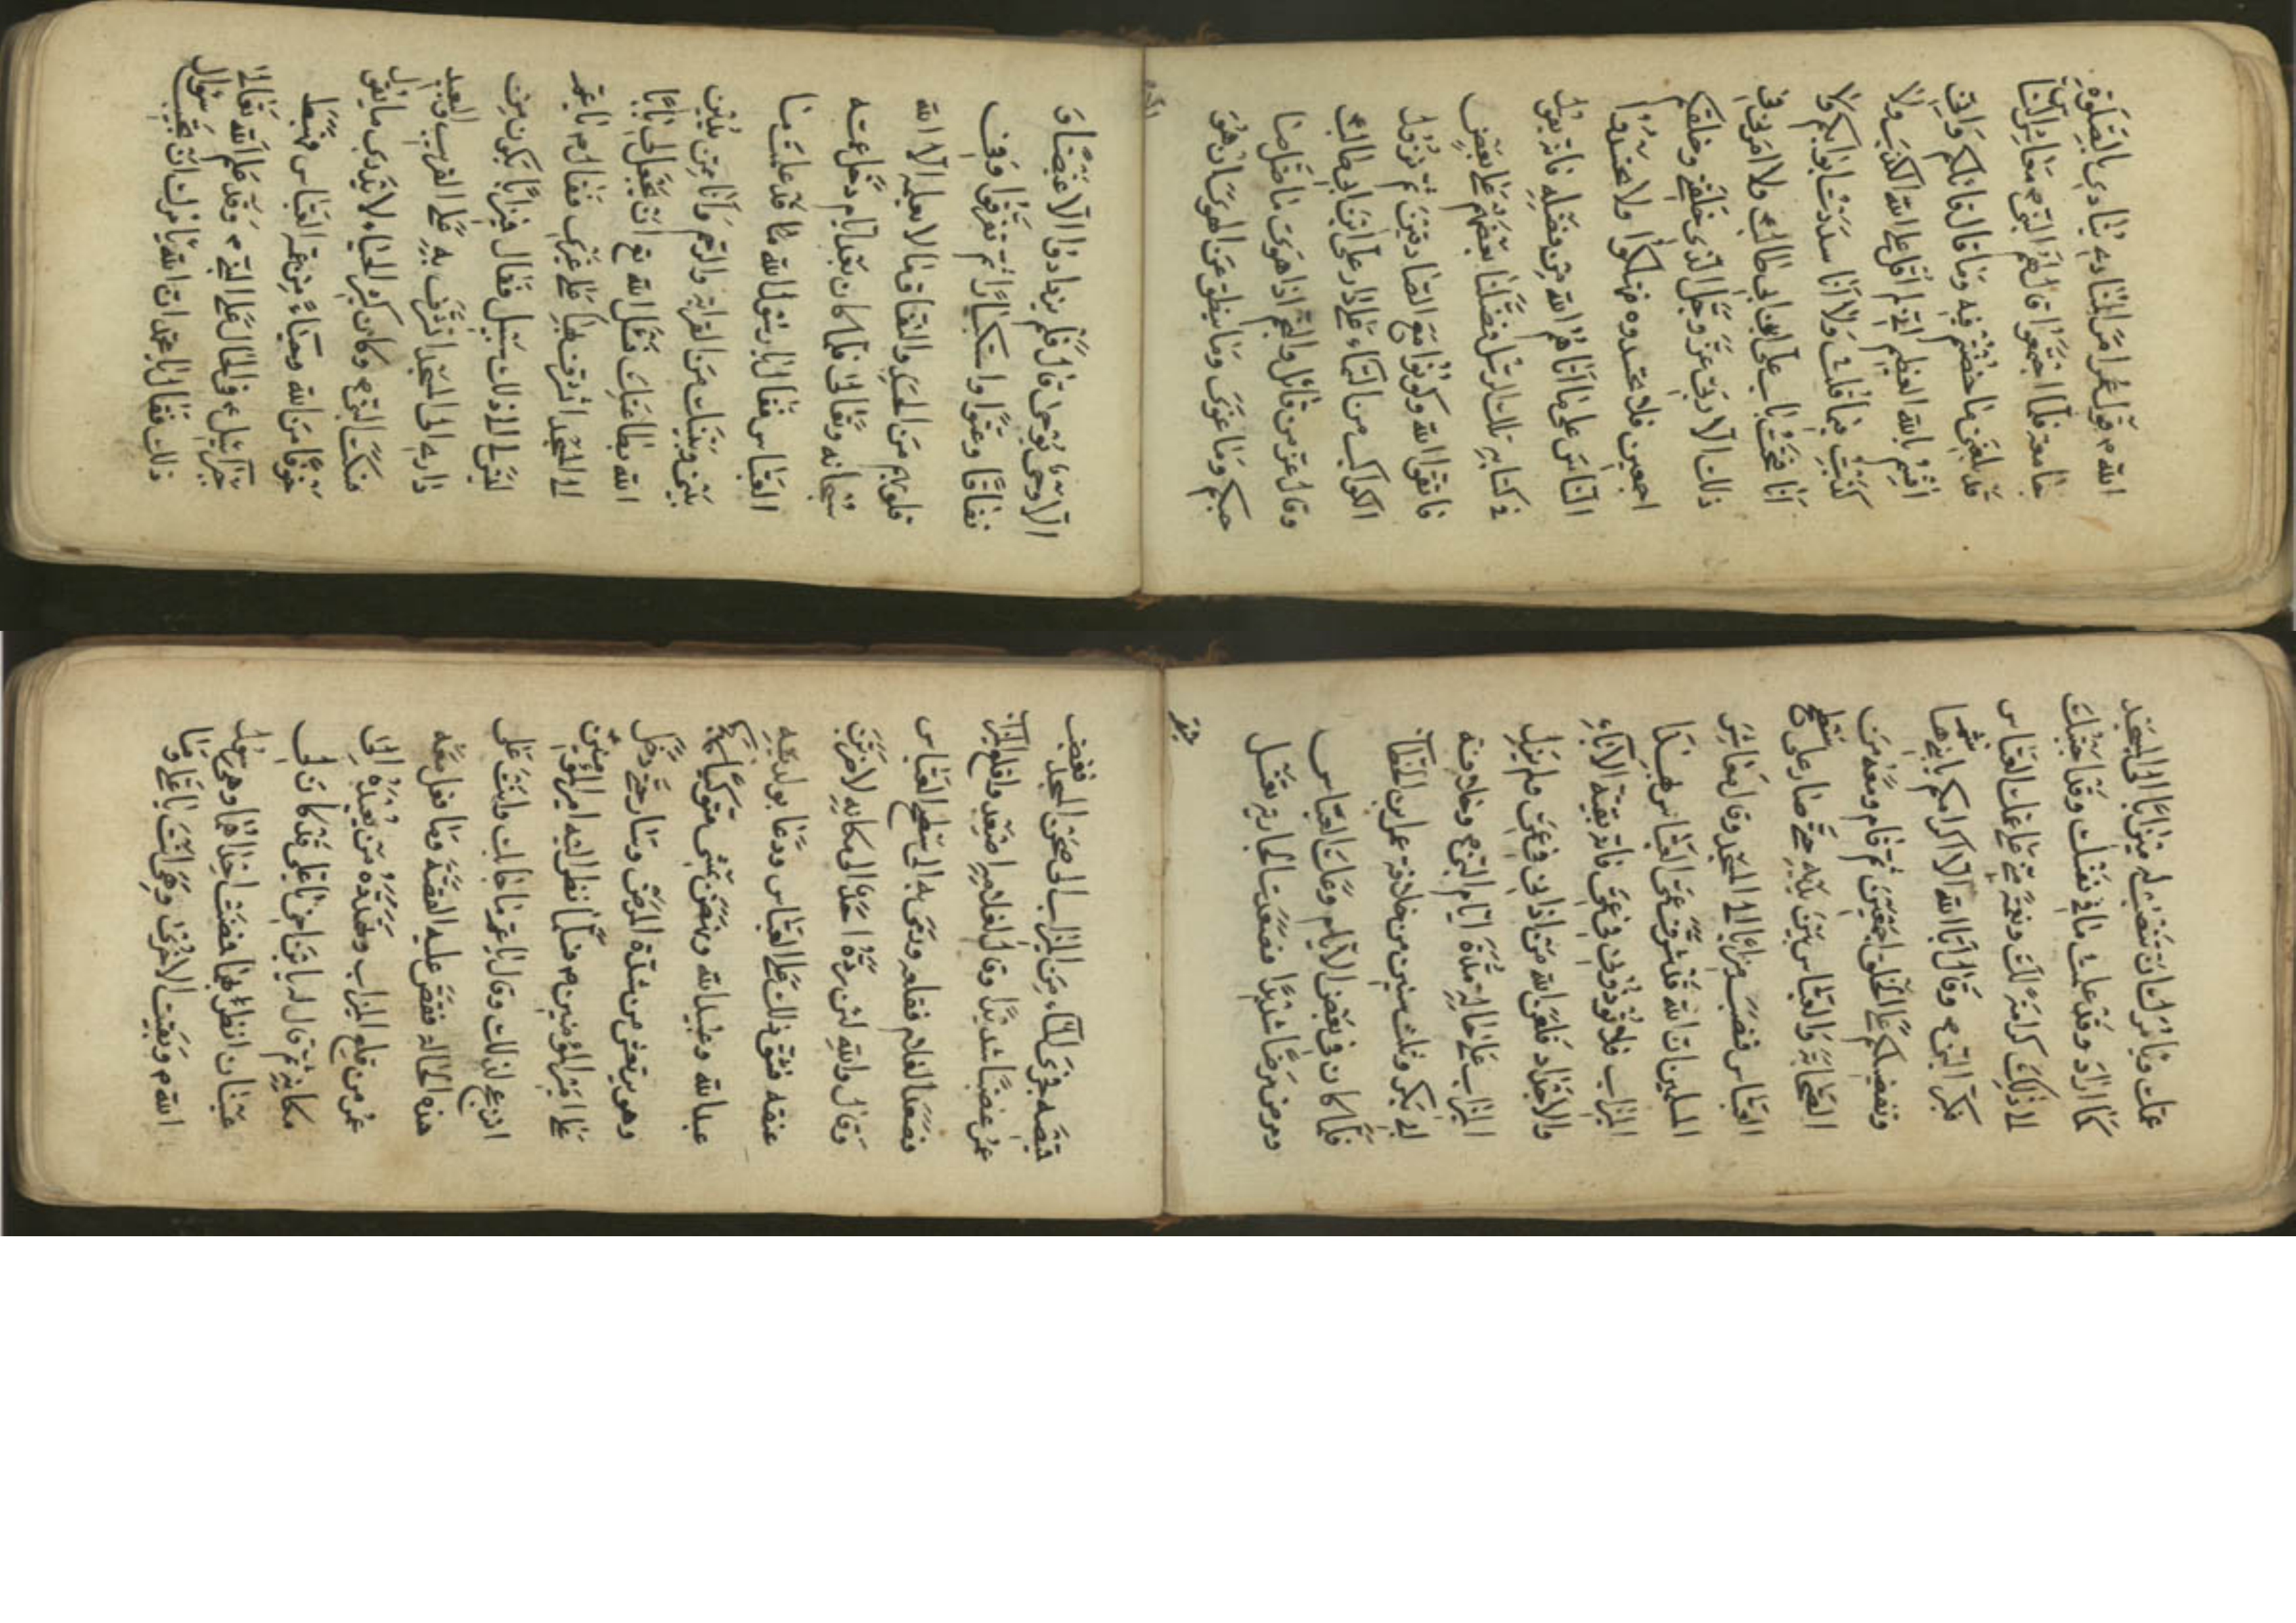 الله م قول عمر امر المنادي ينادي بالصلوة
جامعة فلما اجتمعوا قال لهم النبي م معاشر الناس
قد بلغني ما خضتم فيه وما قال قائلكم واني
اقسم بالله العظيم اني لم اقل على الله الكذب ولا
كذبت فيما قلت ولا انا سددت ابوابكم ولا
انا فتحت باب علي ابن ابي طالب ولا امرني في
ذلك الا ربي عز وجل الذي خلقني وخلقكم
اجمعين فلا تحسدوه فتهلكوا ولا تحسدوا
الناس على ما اتاهم الله من فضله فانه يقول
في كتابه تلك الرسل فضلنا بعضهم على بعض
فاتقوا الله وكونوا مع الصادقين ثم نزول
الكوكب من السماء على دار علي ابن ابي طالب
وقال عز من قائل والنجم اذا هوى ما ضل صا
حبكم وما غوى وما ينطق عن الهوى ان هو
الا وحي يوحى قال فلم يزدادوا الا غيضا و
نفاقا وعتوا واستكبارا ثم تفرقوا وفي
قلوبهم من الحسد والنفاق ما لا يعلمه الا الله
سبحانه وتعالى فلما كان بعد ايام دخل عمه
العباس فقال يا رسول الله م قد علمت ما
بيني وبينك من القرابة والرحم وانا ممن يدين
الله بطاعتك فسئل الله تع ان يجعل لي بابا
الى المسجد اتشرف بها على غيري فقال م يا عم
ليس الى ذلك سبيل فقال فميزابا يكون من
داري الى المسجد اتشرف به على القريب والبعيد
فسكت النبي م وكان كثير الحياء لا يدري ما يقول
خوفا من الله وحياء من عمه العباس فهبط
جبرائيل م في الحال على النبي م وقد علم الله تعالى
ذلك فقال يا محمد ان الله يامرك ان تجيب سؤال
عمك ويامرك ان تنصب له ميزابا الى المسجد
كما اراد وقد علمت ما في نفسك وقد اجبتك
الى ذلك كرامة لك ونعمة مني على عمك العباس
فكبر النبي م وقال ابا الله الا اكرامكم يا بني هاشم
وتفضيلكم على الخلق اجمعين ثم قام ومعه من
الصحابة والعباس بين يديه حتى صار على سطح
العباس فنصب ميزابا الى المسجد وقال معاشر
المسلمين ان الله قد شرف عمي العباس بهذا
الميزاب فلا تؤذوني في عمي فانه بقية الاباء
والاجداد فلعن الله من اذاني في عمي ولم يزل
الميزاب على حاله مدة ايام النبي م وخلافة
ابي بكر وثلث سنين من خلافة عمر ابن الخطاب
فلما كان في بعض الايام وعك العباس
ومرض مرضا شديدا فصعدت الجارية تغسل
قميصه فجرى الماء من الميزاب الى صحن المسجد فغضب
عمر غضبا شديدا وقال لغلامه اصعد واقلع الميزاب
فصعد الغلام فقلعه ورمى به الى سطح العباس
وقال والله لئن رده احد الى مكانه لاضربن
عنقه فشق ذلك على العباس ودعا بولديه
عبد الله وعبيد الله ونهض يمشي متوكيا
وهو يرتعش من شدة المرض وسار حتى دخل
على امير المؤمنين م فلما نظر اليه امير المؤمنين
انزعج لذلك وقال يا عم ما جاء بك وانت على
هذه الحالة فقص عليه القصة وما فعل معه
عمر من قلع الميزاب وتهدده من يعيده الى
مكانه ثم قال له يا بن اخي قد كان لي
عينان انظر بهما فمضت احداهما وهي رسول
الله م وبقيت الاخرى وهي انت يا علي وما